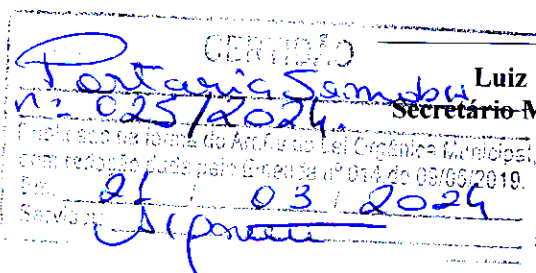 CERTIDÃO
Portaria Semobu
Luiz
nº 025/2024.
Secretário M
na forma do Art. da Lei Orgânica Municipal,
com redação dada pela Emenda nº 014 de 09/05/2019.
Em, 21 / 03 / 2024
Servidor: